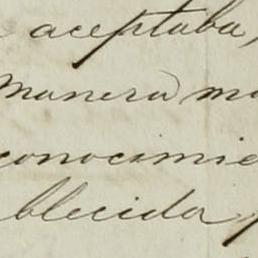 aceptaba,
manera m
conocimie
blecida,